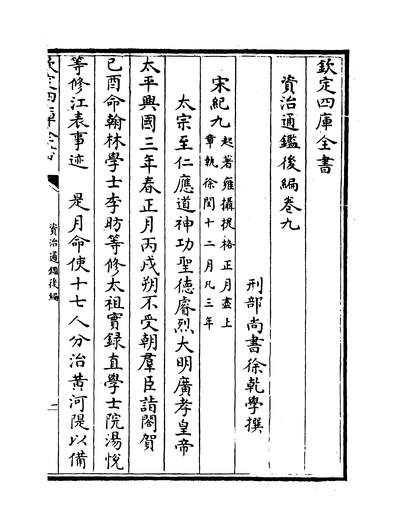 欽定四庫全書
資治通鑑後編卷九
刑部尚書徐乾學撰
宋紀九
起著雍攝提格正月盡上
章執徐閏十二月凡三年
太宗至仁應道神功聖德睿烈大明廣孝皇帝
太平興國三年春正月丙戌朔不受朝羣臣詣閤賀
己酉命翰林學士李昉等修太祖實録直學士院湯悅
等修江表事迹　是月命使十七人分治黄河隄以備
資治通鑑後編